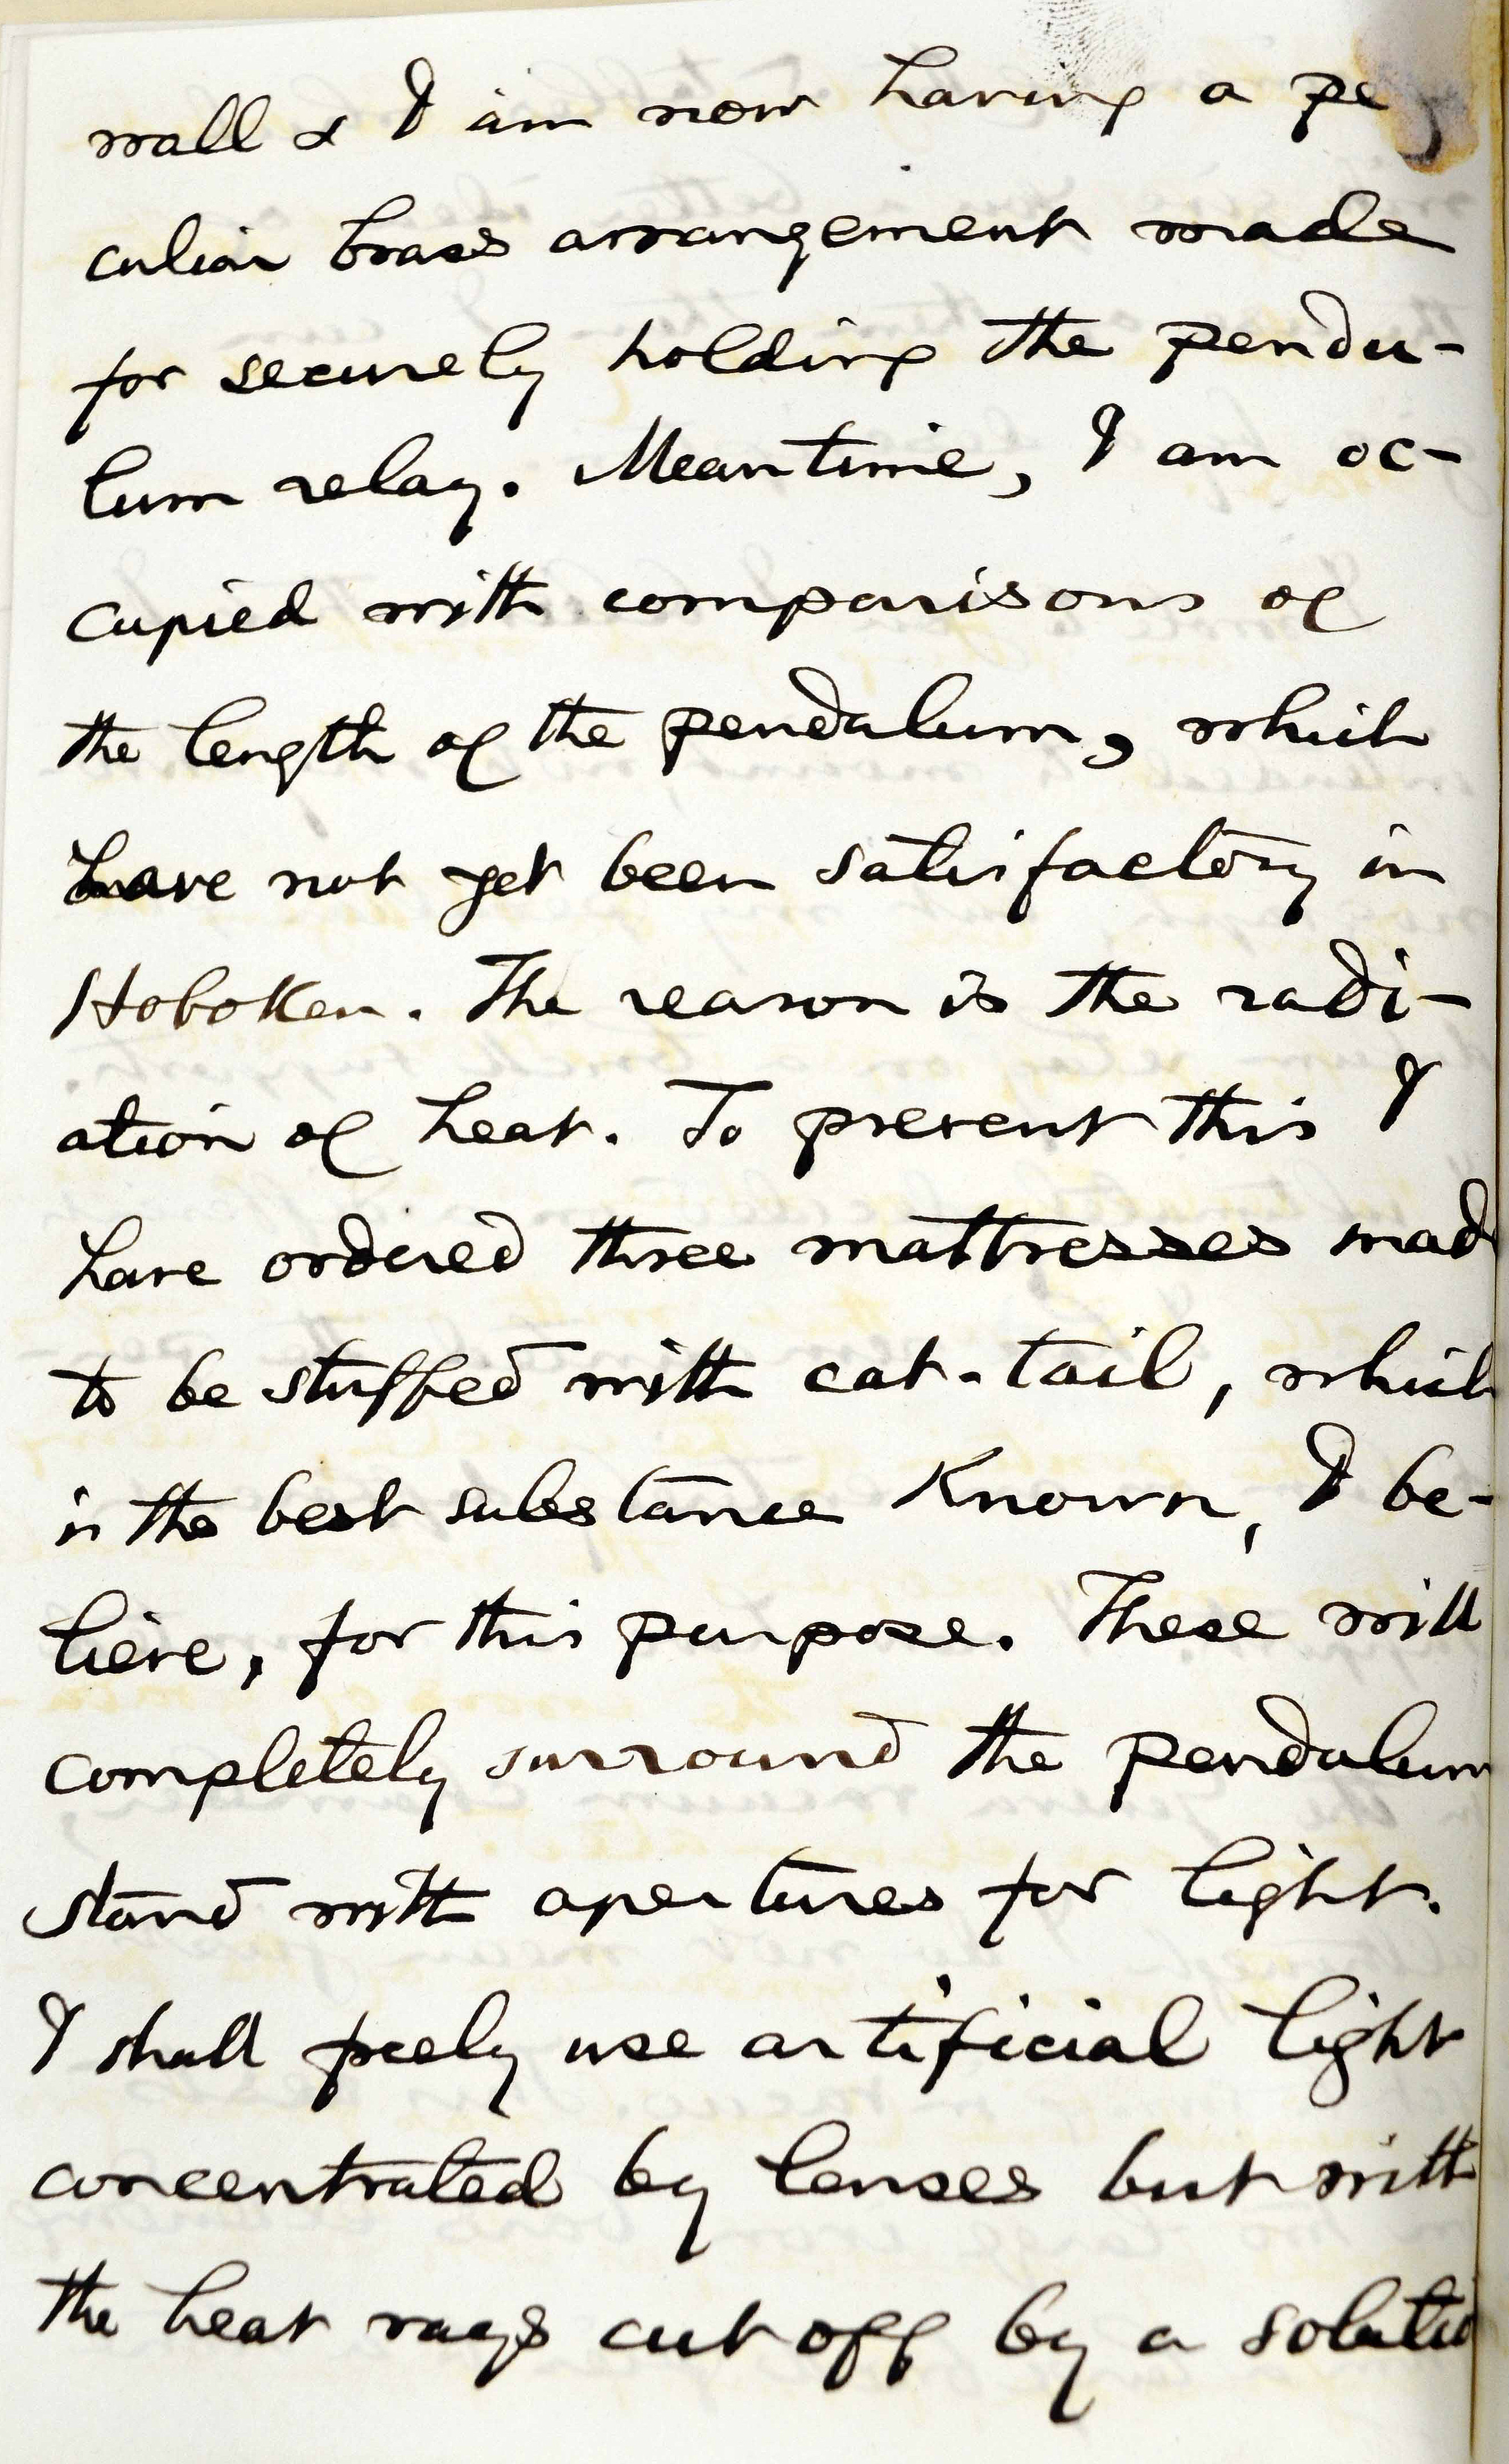 wall & I am now having a pe
culiar brass arrangement made
for securely holding the pendu-
lum relay. Meantime, I am oc-
cupied with comparisons of
the length of the pendulum, which
have not yet been satisfactory in
Hoboken. The reason is the radi-
ation of heat. To prevent this I
have ordered three mattresses mad
to be stuffed with cat-tail, which
is the best substance known, I be-
lieve, for this purpose. These will
completely surround the pendulum
stand with apertures for light.
I shall freely use artificial light
concentrated by lenses but with
the heat rays cut off by a solutio